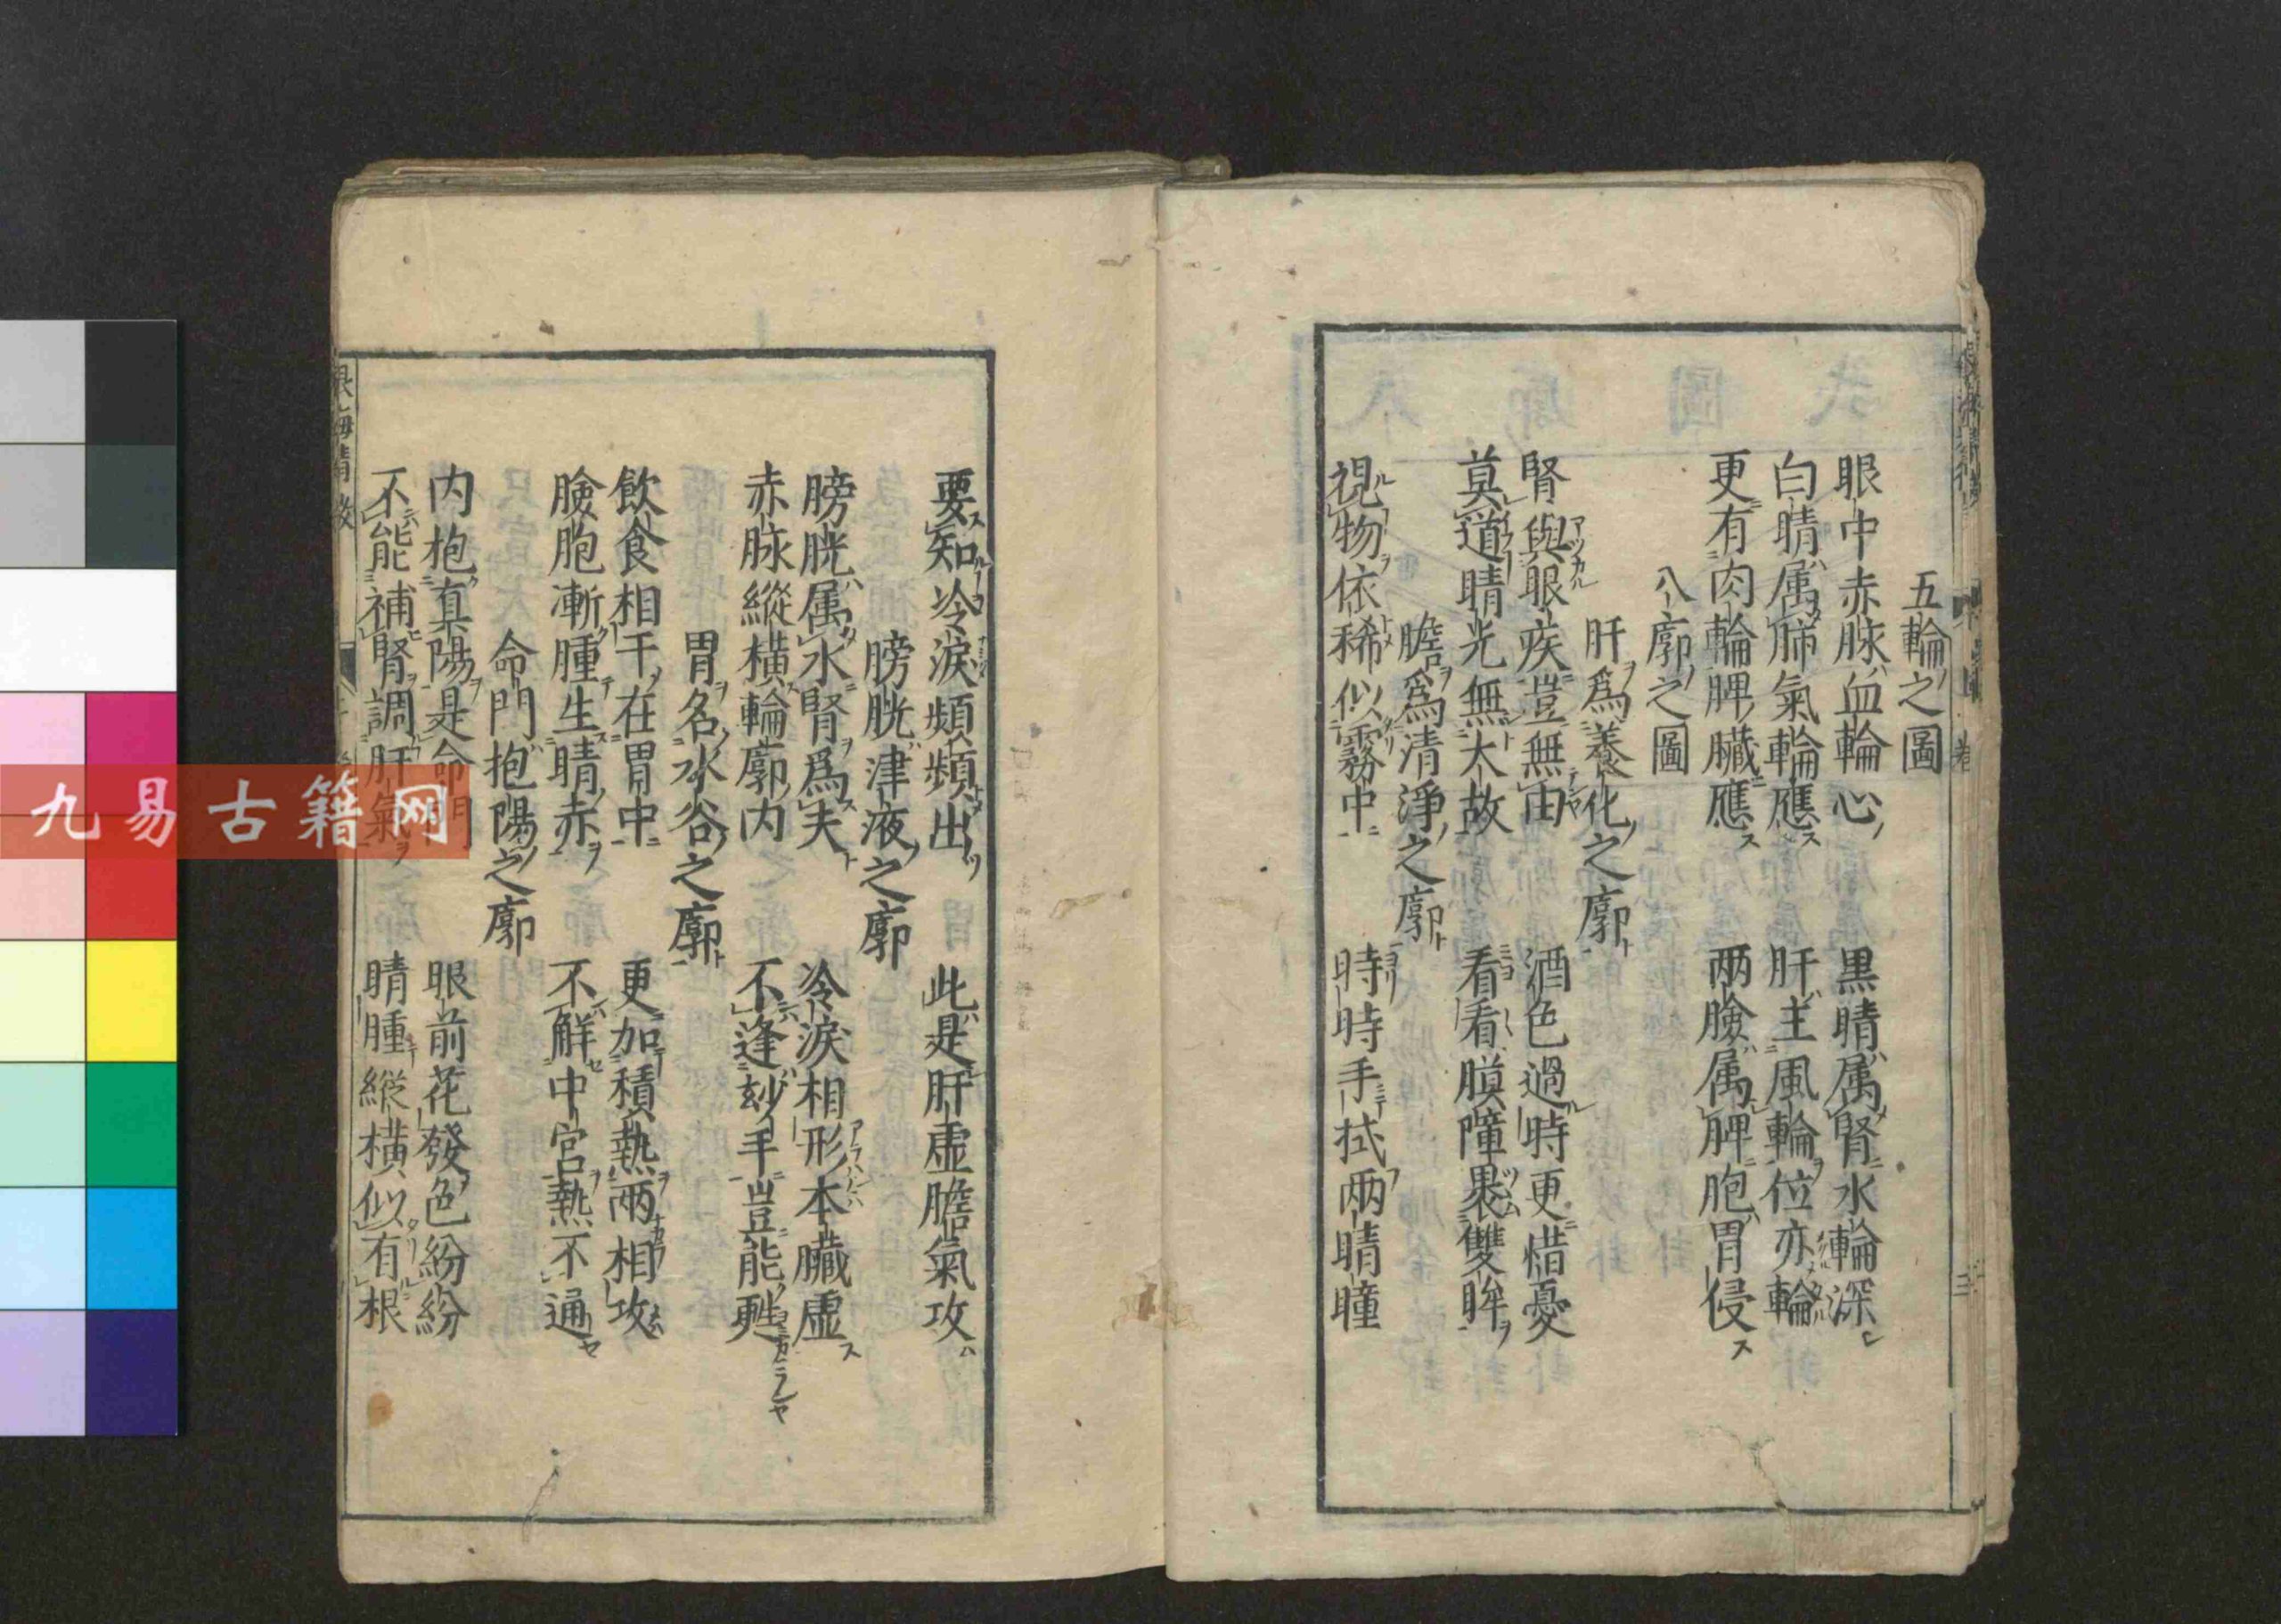 五輪之圖
眼中赤脉血輪心 黒睛属腎水輪深
白睛属肺氣輪應 肝主風輪位亦輪
更有肉輪脾臓應 两臉属脾胞胃侵
八廓之圖
肝爲養化之廓
腎與眼疾豈無由 酒色過時更惜憂
莫道睛光無大故 看看膜障裹雙眸
膽爲清淨之廓
視物依稀似霧中 時時手拭两睛瞳
要知冷淚頻頻出 此是肝虚膽氣攻
膀胱津液之廓
膀胱属水腎爲夫 冷淚相形本臓虚
赤脉縱横輪廓内 不逢玅手豈能甦
胃名水谷之廓
飲食相干在胃中 更加積熱两相攻
臉胞漸腫生睛赤 不鮮中宫熱不通
命門抱陽之廓
内抱真陽是命門 眼前花發色紛紛
不能補腎調肝氣 睛腫縱横似有根
九易古籍网